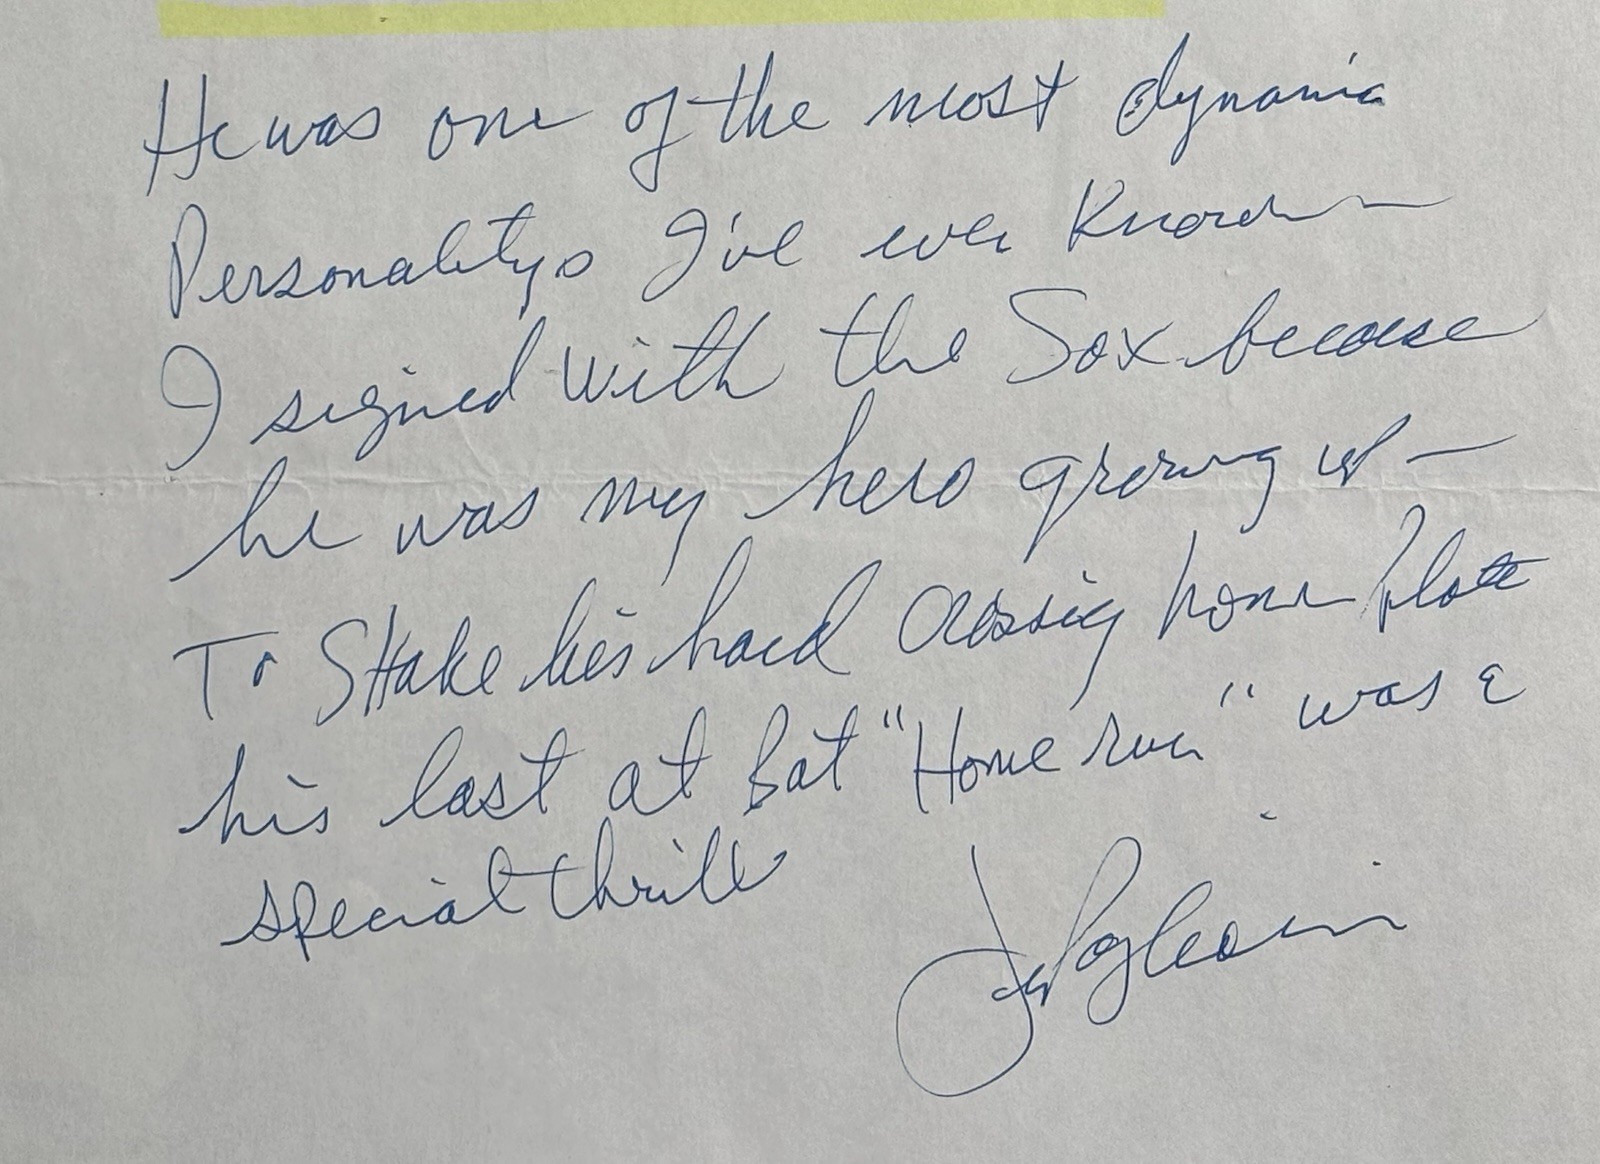 He was one of the most dynamic
Personalitys I've ever Known
I signed with the Sox because
he was my hero growing up —
To SHake his hand crossing home Plate
his last at Bat "Home run" was a
special thrill
Jim Pagliaroni